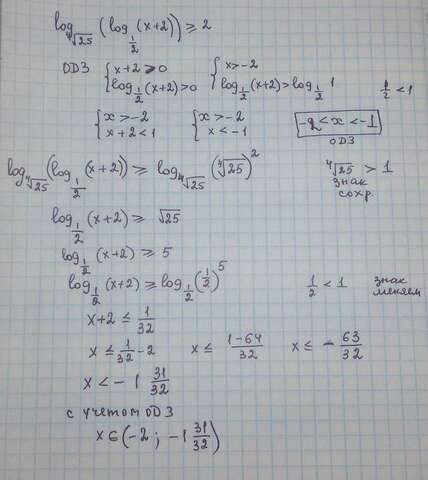 log_{\sqrt[4]{25}} (log_{\frac{1}{2}} (x+2)) ≥ 2
ОДЗ { x+2 > 0 { x > -2
log_{\frac{1}{2}} (x+2) > 0 log_{\frac{1}{2}} (x+2) > log_{\frac{1}{2}} 1 \frac{1}{2} < 1
{ x > -2 { x > -2 -2 < x < -1
x+2 < 1 x < -1 ОДЗ
log_{\sqrt[4]{25}} (log_{\frac{1}{2}} (x+2)) ≥ log_{\sqrt[4]{25}} (\sqrt[4]{25})^2 \sqrt[4]{25} > 1
знак
сохр.
log_{\frac{1}{2}} (x+2) ≥ \sqrt{25}
log_{\frac{1}{2}} (x+2) ≥ 5
log_{\frac{1}{2}} (x+2) ≥ log_{\frac{1}{2}} (\frac{1}{2})^5 \frac{1}{2} < 1 знак
меняем
x+2 ≤ \frac{1}{32}
x ≤ \frac{1}{32} - 2 x ≤ \frac{1-64}{32} x ≤ -\frac{63}{32}
x < -1 \frac{31}{32}
с учетом ОДЗ
x ∈ (-2 ; -1 \frac{31}{32})